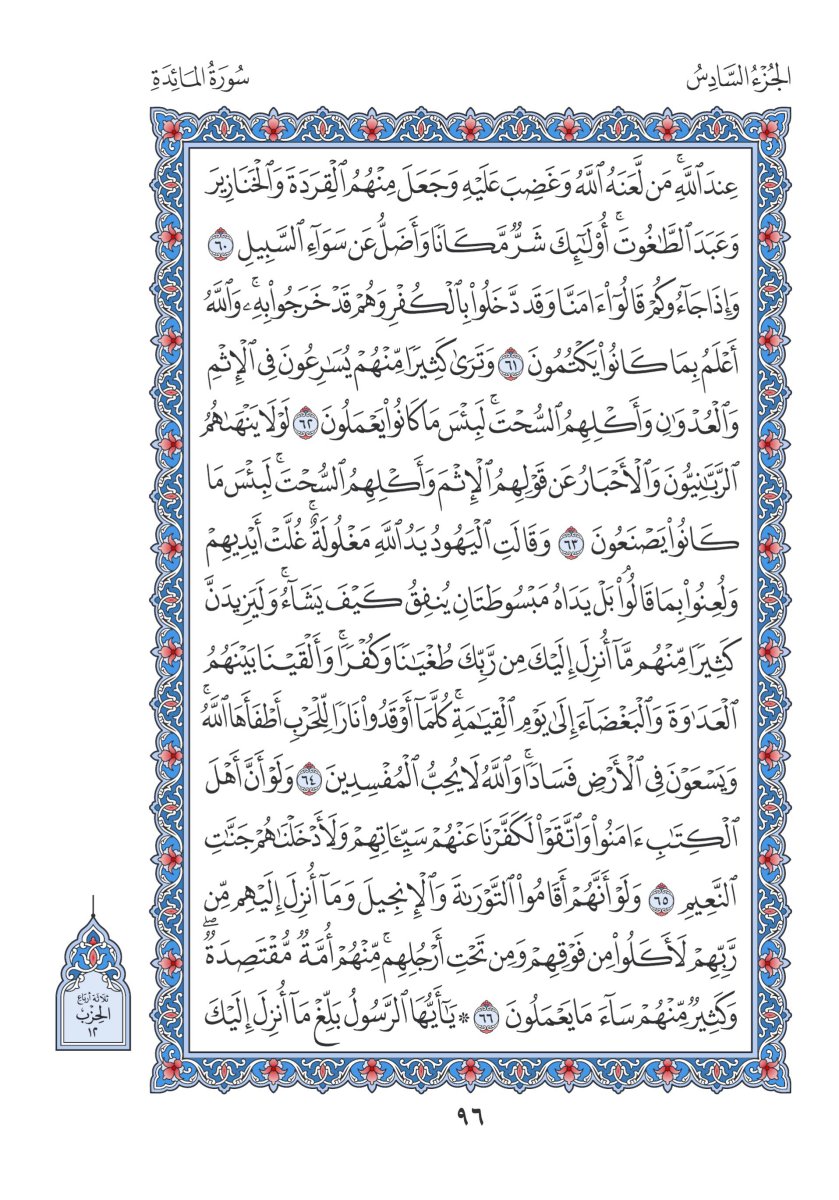 الجُزْءُ السَّادِسُ
سُورَةُ المَائِدَةِ
عِندَ ٱللَّهِۚ مَن لَّعَنَهُ ٱللَّهُ وَغَضِبَ عَلَيْهِ وَجَعَلَ مِنْهُمُ ٱلْقِرَدَةَ وَٱلْخَنَازِيرَ
وَعَبَدَ ٱلطَّٰغُوتَۚ أُوْلَٰٓئِكَ شَرٌّ مَّكَانًا وَأَضَلُّ عَن سَوَآءِ ٱلسَّبِيلِ ٦٠
وَإِذَا جَآءُوكُمْ قَالُوٓا۟ ءَامَنَّا وَقَد دَّخَلُوا۟ بِٱلْكُفْرِ وَهُمْ قَدْ خَرَجُوا۟ بِهِۦۚ وَٱللَّهُ
أَعْلَمُ بِمَا كَانُوا۟ يَكْتُمُونَ ٦١ وَتَرَىٰ كَثِيرًا مِّنْهُمْ يُسَٰرِعُونَ فِى ٱلْإِثْمِ
وَٱلْعُدْوَٰنِ وَأَكْلِهِمُ ٱلسُّحْتَۚ لَبِئْسَ مَا كَانُوا۟ يَعْمَلُونَ ٦٢ لَوْلَا يَنْهَىٰهُمُ
ٱلرَّبَّٰنِيُّونَ وَٱلْأَحْبَارُ عَن قَوْلِهِمُ ٱلْإِثْمَ وَأَكْلِهِمُ ٱلسُّحْتَۚ لَبِئْسَ مَا
كَانُوا۟ يَصْنَعُونَ ٦٣ وَقَالَتِ ٱلْيَهُودُ يَدُ ٱللَّهِ مَغْلُولَةٌۚ غُلَّتْ أَيْدِيهِمْ
وَلُعِنُوا۟ بِمَا قَالُوا۟ۘ بَلْ يَدَاهُ مَبْسُوطَتَانِ يُنفِقُ كَيْفَ يَشَآءُۚ وَلَيَزِيدَنَّ
كَثِيرًا مِّنْهُم مَّآ أُنزِلَ إِلَيْكَ مِن رَّبِّكَ طُغْيَٰنًا وَكُفْرًاۚ وَأَلْقَيْنَا بَيْنَهُمُ
ٱلْعَدَٰوَةَ وَٱلْبَغْضَآءَ إِلَىٰ يَوْمِ ٱلْقِيَٰمَةِۚ كُلَّمَآ أَوْقَدُوا۟ نَارًا لِّلْحَرْبِ أَطْفَأَهَا ٱللَّهُۚ
وَيَسْعَوْنَ فِى ٱلْأَرْضِ فَسَادًاۚ وَٱللَّهُ لَا يُحِبُّ ٱلْمُفْسِدِينَ ٦٤ وَلَوْ أَنَّ أَهْلَ
ٱلْكِتَٰبِ ءَامَنُوا۟ وَٱتَّقَوْا۟ لَكَفَّرْنَا عَنْهُمْ سَيِّـَٔاتِهِمْ وَلَأَدْخَلْنَٰهُمْ جَنَّٰتِ
ٱلنَّعِيمِ ٦٥ وَلَوْ أَنَّهُمْ أَقَامُوا۟ ٱلتَّوْرَىٰةَ وَٱلْإِنجِيلَ وَمَآ أُنزِلَ إِلَيْهِم مِّن
رَّبِّهِمْ لَأَكَلُوا۟ مِن فَوْقِهِمْ وَمِن تَحْتِ أَرْجُلِهِمۚ مِّنْهُمْ أُمَّةٌ مُّقْتَصِدَةٌۖ
وَكَثِيرٌ مِّنْهُمْ سَآءَ مَا يَعْمَلُونَ ٦٦ ۞ يَٰٓأَيُّهَا ٱلرَّسُولُ بَلِّغْ مَآ أُنزِلَ إِلَيْكَ
ثلاثة أرباع
الحِزْب
١٢
٩٦